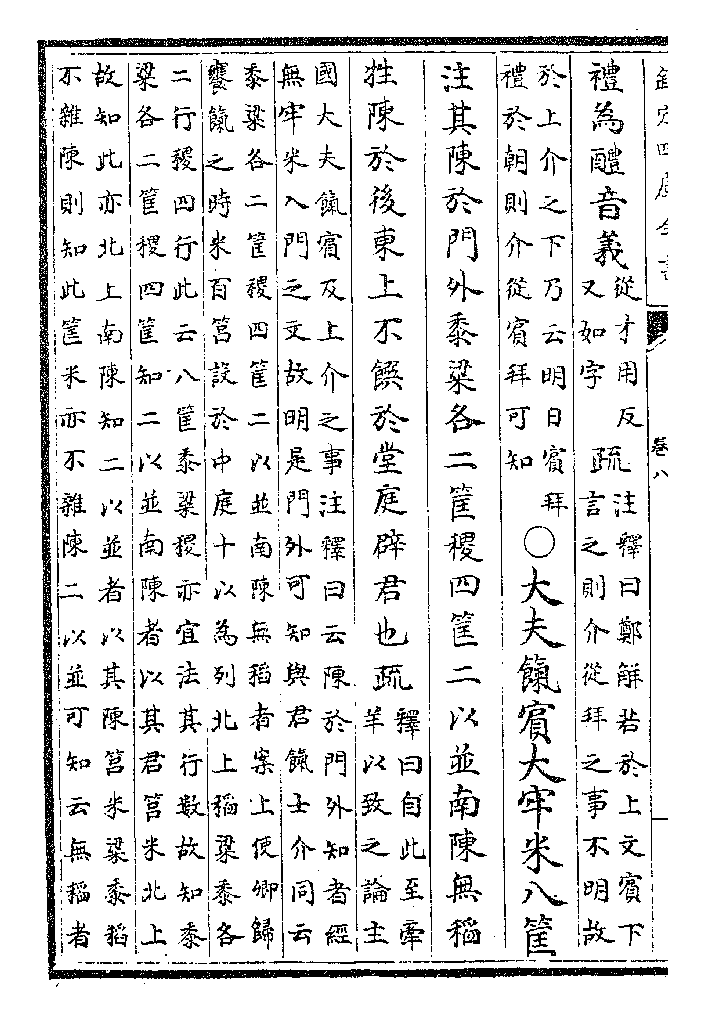 欽定四庫全書
卷八
禮為醴音義
從才用反
又如字
疏
注釋曰鄭解若於上文賓下
言之則介從拜之事不明故
於上介之下乃云明日賓拜
禮於朝則介從賓拜可知
○大夫餼賓大牢米八筐
注其陳於門外黍粱各二筐稷四筐二以並南陳無稻
牲陳於後東上不饌於堂庭辟君也疏
釋曰自此至牽
羊以致之論主
國大夫餼賓及上介之事注釋曰云陳於門外知者經
無牢米入門之文故明是門外可知與君餼士介同云
黍粱各二筐稷四筐二以並南陳無稻者案上使卿歸
饔餼之時米百筥設於中庭十以為列北上稻粱黍各
二行稷四行此云八筐黍粱稷亦宜法其行數故知黍
粱各二筐稷四筐知二以並南陳者以其君筥米北上
故知此亦北上南陳知二以並者以其陳筥米粱黍稻
不雜陳則知此筐米亦不雜陳二以並可知云無稻者